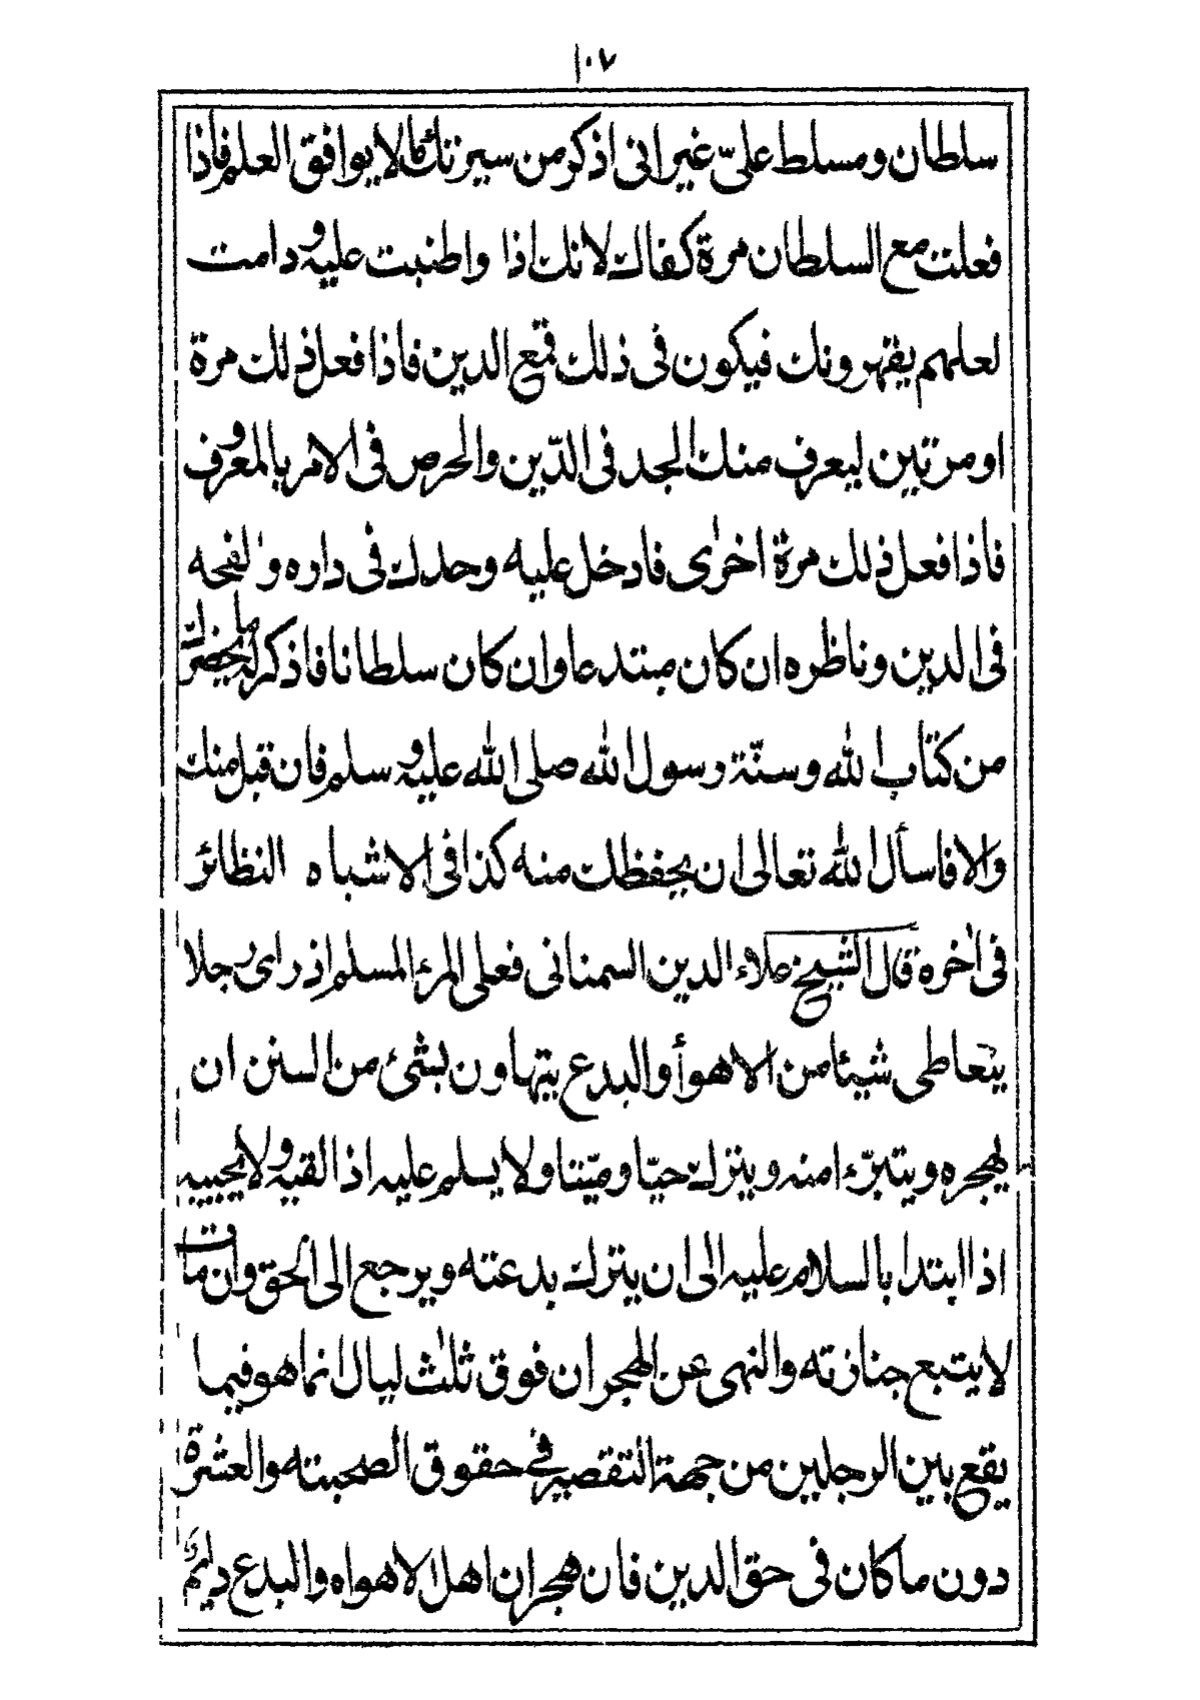 ١٠٧
سلطان ومسلط علىّ غير انى اذكر من سيرتك ما لا يوافق العلم فاذا
فعلت مع السلطان مرة كفاك لانك اذا واظبت عليه و دامت
لعلهم يقهرونك فيكون فى ذلك قمع الدين فاذا فعل ذلك مرة
او مرتين ليعرف منك الجد فى الدّين والحرص فى الامر بالمعروف
فاذا فعل ذلك مرة اخرى فادخل عليه وحدك فى داره و
فى الدين وناظره ان كان مبتدعا وان كان سلطانا فاذكر له ما يحضرك
من كتاب الله وسنّة رسول الله صلى الله عليه و سلم فان قبل منك
والا فاسأل الله تعالى ان يحفظك منه كذا فى الاشباه النظائر
فى اخره قال الشيخ علاء الدين السمنانى فعلى المرء المسلم اذ راى رجلا
يتعاطى شيئا من الاهوأ والبدع يتهاون بشئ من السنن ان
يهجره ويتبرّء امنه ويترك حيّا وميّتا ولا يسلم عليه اذا القيه و لا يجيبه
اذا ابتدا بالسلام عليه الى ان يترك بدعته ويرجع الى الحق وان مات
لا يتبع جنازته والنهى عن الهجران فوق ثلث ليال انما هو فيما
يقع بين الرجلين من جهة التقصير فى حقوق الصحبته والعشرة
دون ما كان فى حق الدين فان هجران اهل الاهواه والبدع دايم